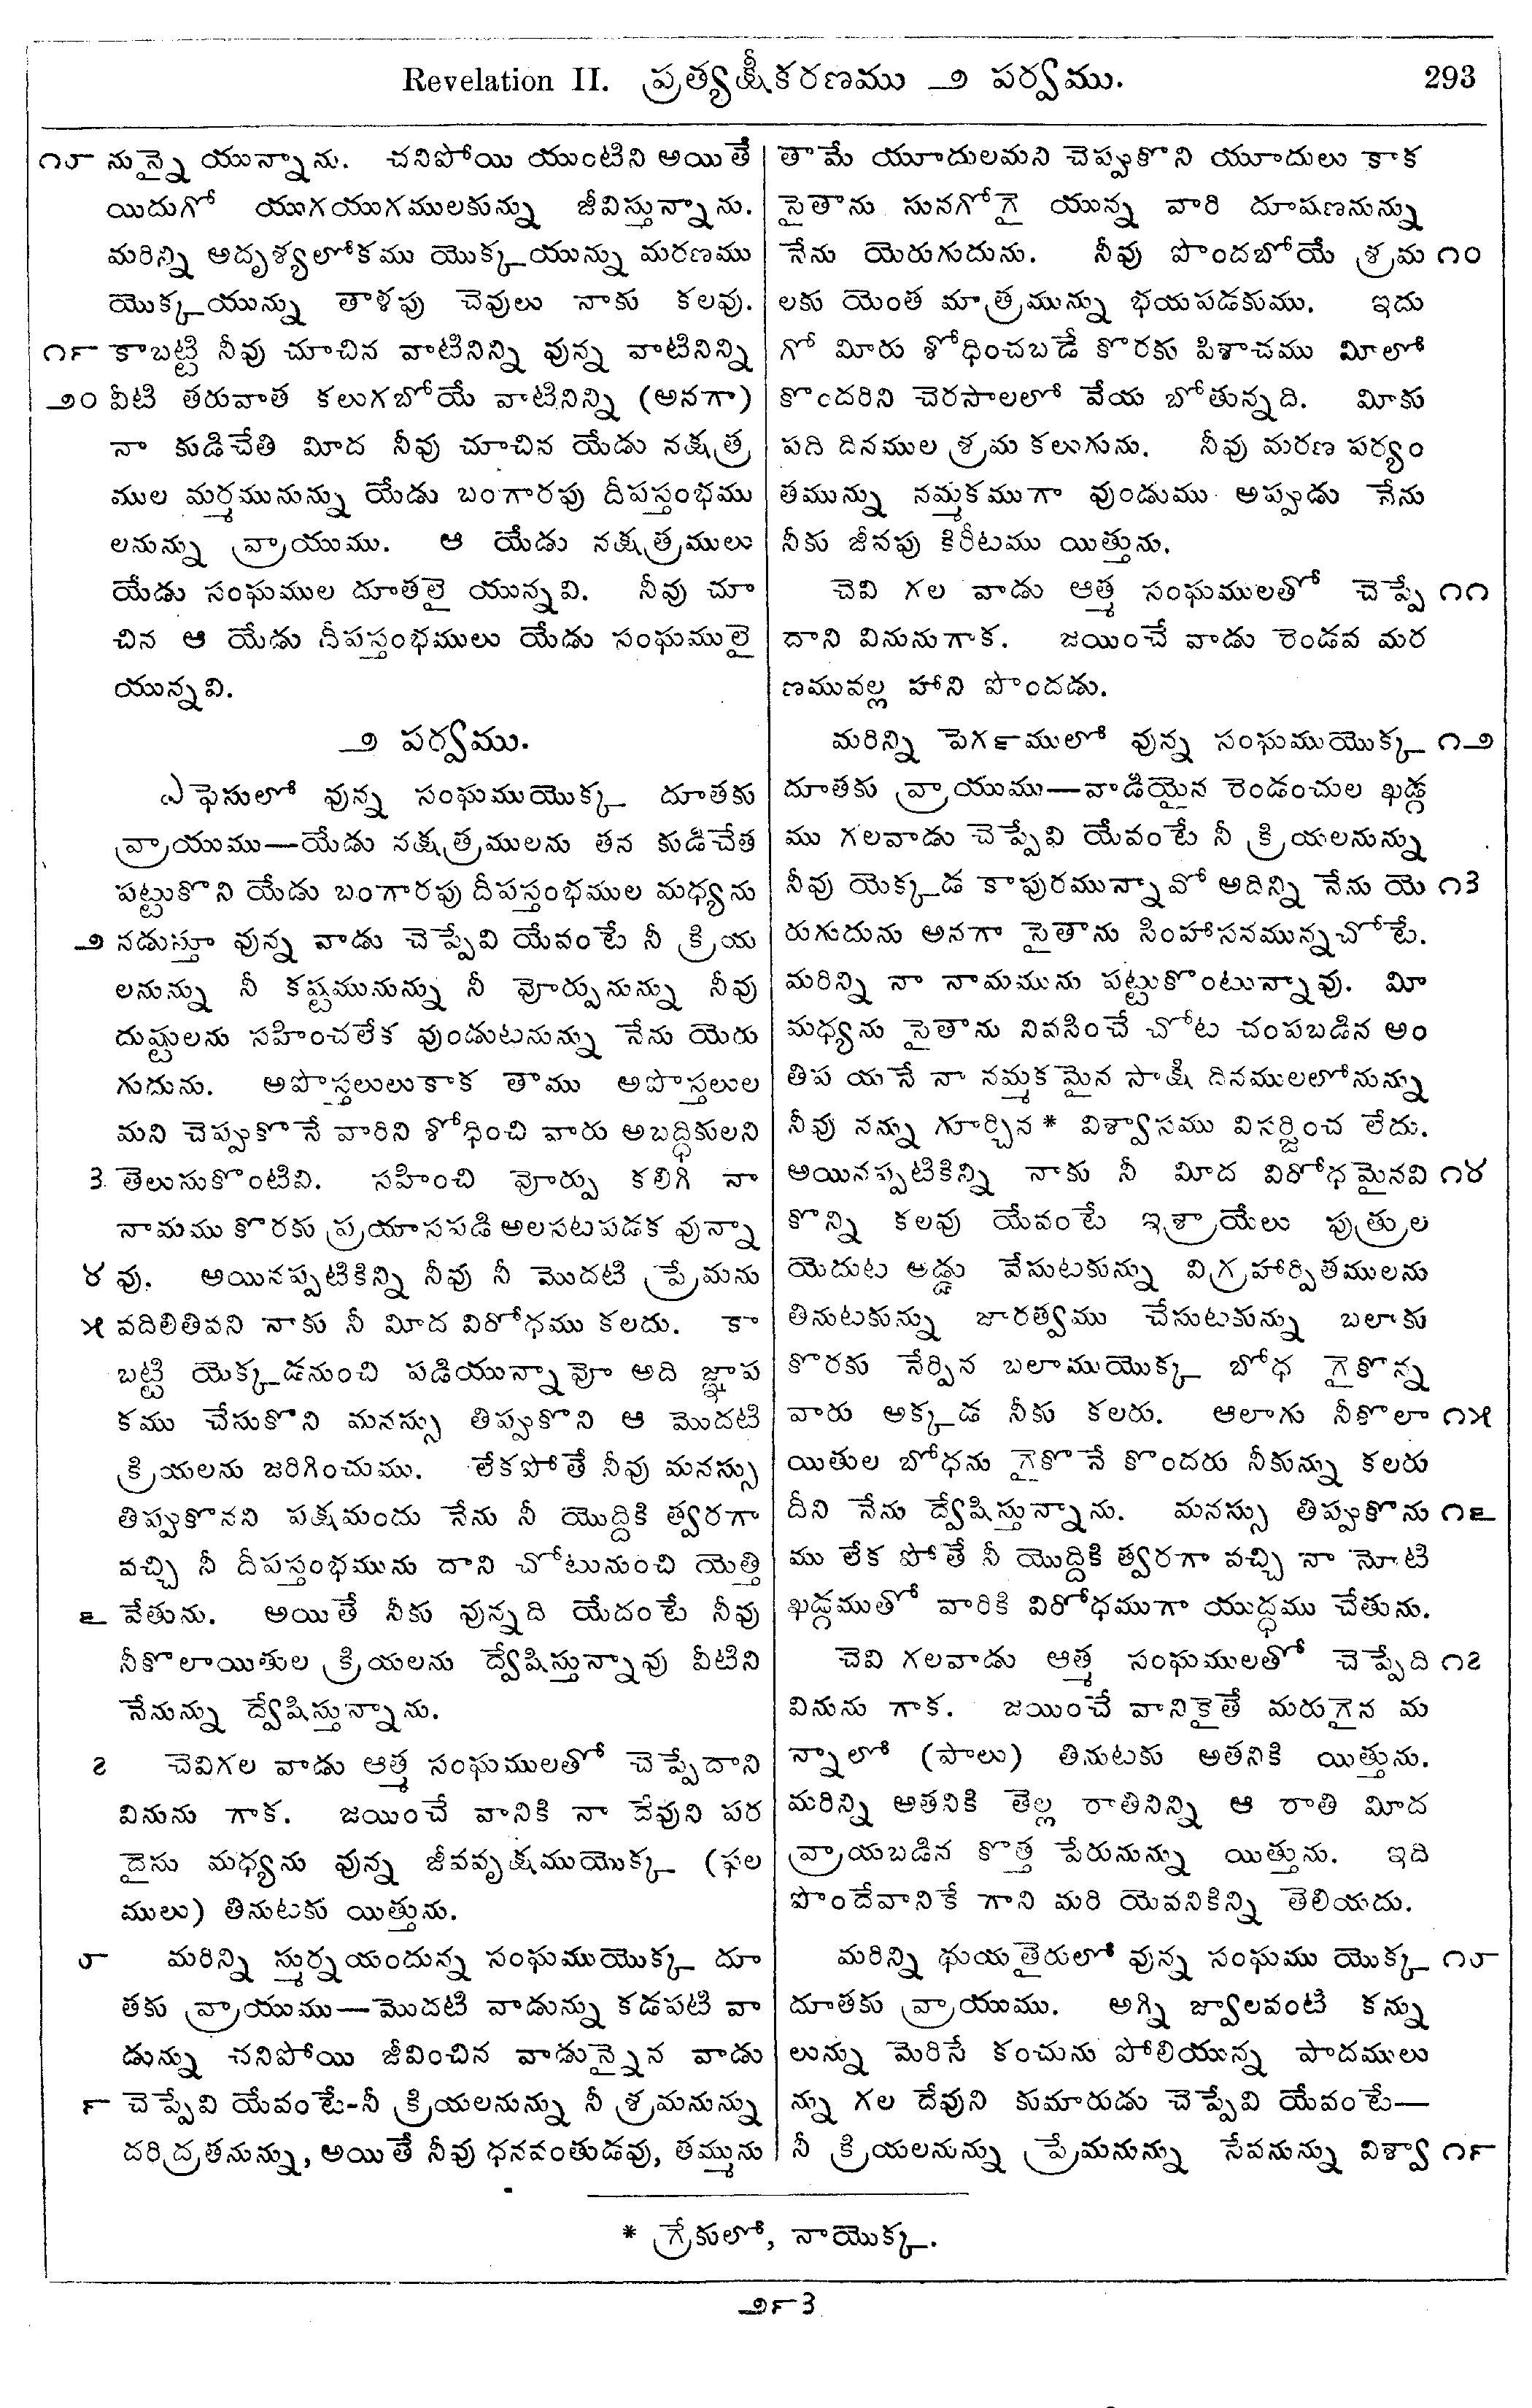 Revelation II. ప్రత్యక్షీకరణము ౨ పర్వము. 293
౧౮ నున్నై యున్నాను. చనిపోయి యుంటిని అయితే
యిదుగో యుగయుగములకున్ను జీవిస్తున్నాను.
మరిన్ని అదృశ్యలోకము యొక్కయున్ను మరణము
యొక్కయున్ను తాళపు చెవులు నాకు కలవు.
౧౯ కాబట్టి నీవు చూచిన వాటినిన్ని వున్న వాటినిన్ని
౨౦ వీటి తరువాత కలుగబోయే వాటినిన్ని (అనగా)
నా కుడిచేతి మీద నీవు చూచిన యేడు నక్షత్ర
ముల మర్మమునున్ను యేడు బంగారపు దీపస్తంభము
లనున్ను వ్రాయుము. ఆ యేడు నక్షత్రములు
యేడు సంఘముల దూతలై యున్నవి. నీవు చూ
చిన ఆ యేడు దీపస్తంభములు యేడు సంఘములై
యున్నవి.
౨ పర్వము.
ఎఫెసులో వున్న సంఘముయొక్క దూతకు
వ్రాయుము—యేడు నక్షత్రములను తన కుడిచేత
పట్టుకొని యేడు బంగారపు దీపస్తంభముల మధ్యను
౨ నడుస్తూ వున్న వాడు చెప్పేవి యేవంటే నీ క్రియ
లనున్ను నీ కష్టమునున్ను నీ వోర్పునున్ను నీవు
దుష్టులను సహించలేక వుండుటనున్ను నేను యెరు
గుదును. అపొస్తలులుకాక తాము అపొస్తలుల
మని చెప్పుకొనే వారిని శోధించి వారు అబద్ధికులని
౩ తెలుసుకొంటివి. సహించి వోర్పు కలిగి నా
నామము కొరకు ప్రయాసపడి అలసటపడక వున్నా
౪ వు. అయినప్పటికిన్ని నీవు నీ మొదటి ప్రేమను
౫ వదిలితివని నాకు నీ మీద విరోధము కలదు. కా
బట్టి యెక్కడనుంచి పడియున్నావో అది జ్ఞాప
కము చేసుకొని మనస్సు తిప్పుకొని ఆ మొదటి
క్రియలను జరిగించుము. లేకపోతే నీవు మనస్సు
తిప్పుకొనని పక్షమందు నేను నీ యొద్దికి త్వరగా
వచ్చి నీ దీపస్తంభమును దాని చోటునుంచి యెత్తి
౬ వేతును. అయితే నీకు వున్నది యేదంటే నీవు
నీకొలాయితుల క్రియలను ద్వేషిస్తున్నావు వీటిని
నేనున్ను ద్వేషిస్తున్నాను.
౭ చెవిగల వాడు ఆత్మ సంఘములతో చెప్పేదాని
వినును గాక. జయించే వానికి నా దేవుని పర
దైసు మధ్యను వున్న జీవవృక్షముయొక్క (ఫల
ములు) తినుటకు యిత్తును.
౮ మరిన్ని స్ముర్నయందున్న సంఘముయొక్క దూ
తకు వ్రాయుము—మొదటి వాడున్ను కడపటి వా
డున్ను చనిపోయి జీవించిన వాడున్నైన వాడు
౯ చెప్పేవి యేవంటే-నీ క్రియలనున్ను నీ శ్రమనున్ను
దరిద్రతనున్ను, అయితే నీవు ధనవంతుడవు, తమ్మును
తామే యూదులమని చెప్పుకొని యూదులు కాక
సైతాను సునగోగై యున్న వారి దూషణనున్ను
నేను యెరుగుదును. నీవు పొందబోయే శ్రమ ౧౦
లకు యెంత మాత్రమున్ను భయపడకుము. ఇదు
గో మీరు శోధించబడే కొరకు పిశాచము మీలో
కొందరిని చెరసాలలో వేయ బోతున్నది. మీకు
పది దినముల శ్రమ కలుగును. నీవు మరణ పర్యం
తమున్ను నమ్మకముగా వుండుము అప్పుడు నేను
నీకు జీవపు కిరీటము యిత్తును.
చెవి గల వాడు ఆత్మ సంఘములతో చెప్పే ౧౧
దాని వినునుగాక. జయించే వాడు రెండవ మర
ణమువల్ల హాని పొందడు.
మరిన్ని పెర్గములో వున్న సంఘముయొక్క ౧౨
దూతకు వ్రాయుము—వాడియైన రెండంచుల ఖడ్గ
ము గలవాడు చెప్పేవి యేవంటే నీ క్రియలనున్ను
నీవు యెక్కడ కాపురమున్నావో అదిన్ని నేను యె ౧౩
రుగుదును అనగా సైతాను సింహాసనమున్నచోటే.
మరిన్ని నా నామమును పట్టుకొంటున్నావు. మీ
మధ్యను సైతాను నివసించే చోట చంపబడిన అం
తిప యనే నా నమ్మకమైన సాక్షి దినములలోనున్ను
నీవు నన్ను గూర్చిన* విశ్వాసము విసర్జించ లేదు.
అయినప్పటికిన్ని నాకు నీ మీద విరోధమైనవి ౧౪
కొన్ని కలవు యేవంటే ఇశ్రాయేలు పుత్రుల
యెదుట అడ్డు వేసుటకున్ను విగ్రహార్పితములను
తినుటకున్ను జారత్వము చేసుటకున్ను బలాకు
కొరకు నేర్పిన బలాముయొక్క బోధ గైకొన్న
వారు అక్కడ నీకు కలరు. ఆలాగు నీకొలా ౧౫
యితుల బోధను గైకొనే కొందరు నీకున్ను కలరు
దీని నేను ద్వేషిస్తున్నాను. మనస్సు తిప్పుకొను ౧౬
ము లేక పోతే నీ యొద్దికి త్వరగా వచ్చి నా నోటి
ఖడ్గముతో వారికి విరోధముగా యుద్ధము చేతును.
చెవి గలవాడు ఆత్మ సంఘములతో చెప్పేది ౧౭
వినును గాక. జయించే వానికైతే మరుగైన మ
న్నాలో (పాలు) తినుటకు అతనికి యిత్తును.
మరిన్ని అతనికి తెల్ల రాతినిన్ని ఆ రాతి మీద
వ్రాయబడిన కొత్త పేరునున్ను యిత్తును. ఇది
పొందేవానికే గాని మరి యెవనికిన్ని తెలియదు.
మరిన్ని థుయతైరులో వున్న సంఘము యొక్క ౧౮
దూతకు వ్రాయుము. అగ్ని జ్వాలవంటి కన్ను
లున్ను మెరిసే కంచును పోలియున్న పాదములు
న్ను గల దేవుని కుమారుడు చెప్పేవి యేవంటే—
నీ క్రియలనున్ను ప్రేమనున్ను సేవనున్ను విశ్వా ౧౯
* గ్రేకులో, నాయొక్క.
౨౯౩